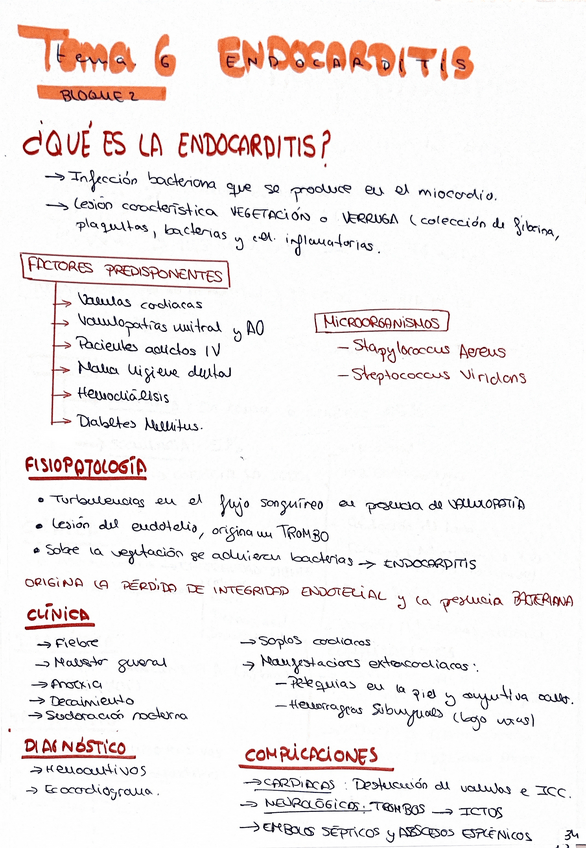 Tema 6 ENDOCARDITIS
BLOQUE 2
¿QUÉ ES LA ENDOCARDITIS?
→ Infección bacteriana que se produce en el miocardio.
→ Lesión característica VEGETACIÓN o VERRUGA (colección de fibrina,
plaquetas, bacterias y cél. inflamatorias.
FACTORES PREDISPONENTES
→ Valvulas cardiacas
→ Valvulopatías mitral y AO
→ Pacientes adictos IV
→ Mala higiene dental
→ Hemodiálisis
→ Diabetes Mellitus.
MICROORGANISMOS
- Stapylococcus Aereus
- Steptococcus Viridans
FISIOPATOLOGÍA
• Turbulencias en el flujo sanguíneo en presencia de VALVULOPATÍA
• Lesión del endotelio, origina un TROMBO
• Sobre la vegetación se adhieren bacterias → ENDOCARDITIS
ORIGINA LA PÉRDIDA DE INTEGRIDAD ENDOTELIAL y la presencia BATERIANA
CLÍNICA
→ Fiebre
→ Malestar general
→ Anorexia
→ Decaimiento
→ Sudoración nocturna
→ Soplos cardiacos
→ Manifestaciones extracardiacas:
- Petequias en la piel y conjuntiva
- Hemorragias Subunguals (bajo uñas)
DIAGNÓSTICO
→ Hemocultivos
→ Ecocardiograma.
COMPLICACIONES
→ CARDIACAS: Destrucción de valvulas e ICC.
→ NEUROLÓGICAS: TROMBOS → ICTOS
→ EMBOLOS SÉPTICOS y ABSCESOS ESPLÉNICOS
34